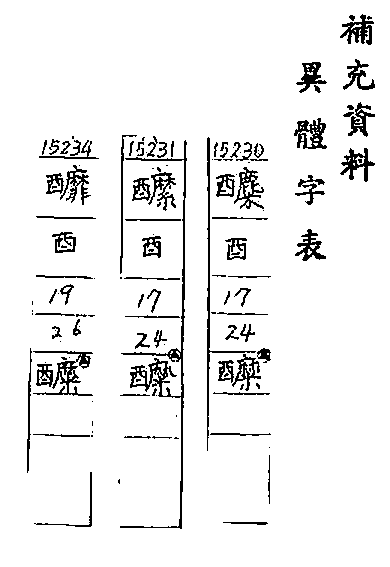 補充資料
異體字表
15230
醾
酉
17
24
15231
酉
17
24
15234
醿
酉
19
26